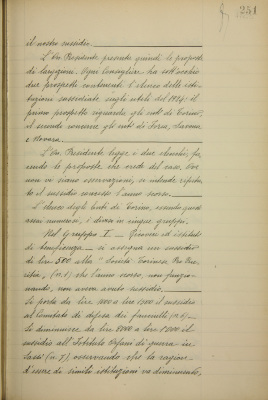 251
il nostro sussidio.
L'On. Presidente presenta quindi le proposte
di erogazione. Ogni Consigliere ha sott'occhio
due prospetti contenenti l'elenco delle isti-
tuzioni sussidiate sugli utili del 1924: il
primo prospetto riguarda gli enti di Torino,
il secondo concerne gli enti di Ivrea, Savona
e Novara.
L'On. Presidente legge i due elenchi, fa
cendo le proposte che crede del caso. Ove
non vi siano osservazioni, si intende ripetu-
to il sussidio concesso l'anno scorso.
L'elenco degli enti di Torino, essendo questi
assai numerosi, è diviso in cinque gruppi.
Nel Gruppo I. - Ricoveri ed istituti
di beneficenza - si assegna un sussidio
di lire 500 alla "Società Torinese Pro Pue
ritia, (n. 1) che l'anno scorso, non funzio-
nando, non aveva avuto sussidio.
Si porta da lire 1000 a lire 1500 il sussidio
al Comitato di difesa dei fanciulli (n. 6) -
Si diminuisce da lire 2000 a lire 1000 il
sussidio all'Istituto Orfani di guerra in
Sassi (n. 7), osservando che la ragion
d'essere di simili istituzioni va diminuendo,